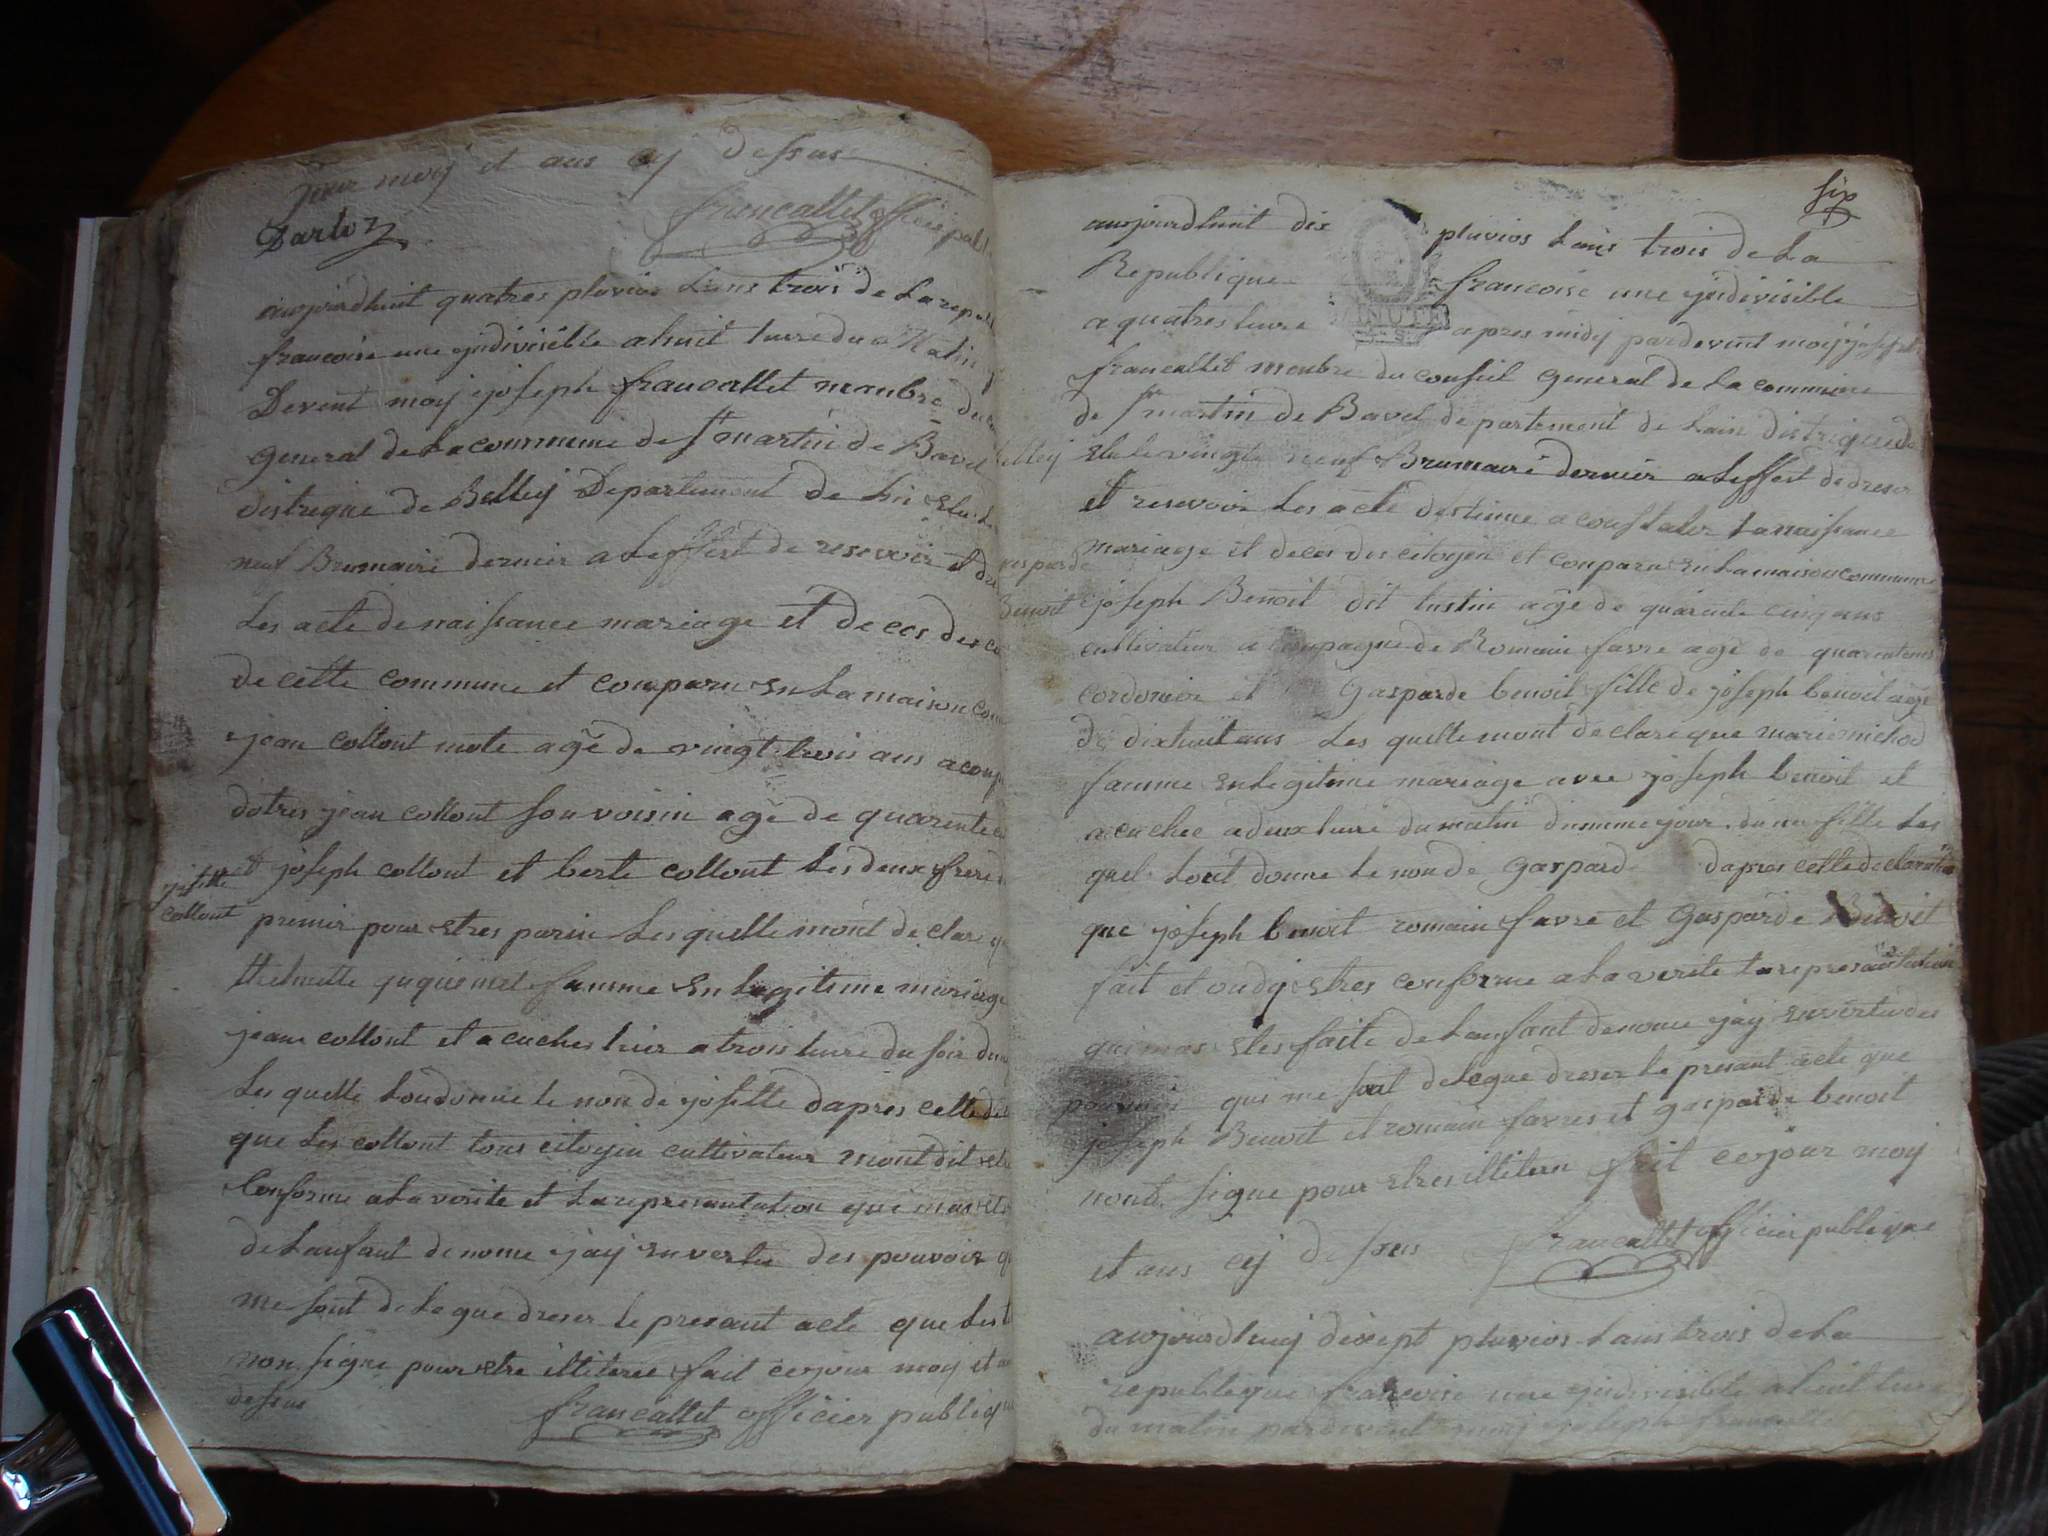 jour moy et ans cy dessus
Darloz francallet officié publ
aujourdhuit quatres pluvios Lans trois de La repub
francoise une yndivisible a huit heure du Matin
Devent moy joseph francallet menbre du
general de La commune de St martin de Bavel
distrique de Belley Departement de Lin Elu Le
neuf Brumaire dernier a Leffert de resevoir et dre
Les acte de naissance mariage et de ces des ci
de cette commune et conparu En La maison com
jean collont mote agé de vingt trois ans aconp
dotres jean collont son voisin agé de quarente
& joseph collont et berte collont Les deux frere
josette
collont
premir pour Etres parin Les quelle mont declare q
famme En Legitime mariage
jean collont et a cuches hier a trois heure du soir du
Les quelle Lon donne le non de josette dapres cette de
que Les collont tous citoyin cultivateur mont dit Et
Conforme a La verite et La represantation qui mas Et
de Lanfant de nome jay En vertu des pouvoir q
me sont delegue dreser le presant acte que Les
non signe pour Etre illiterée fait ce jour moy et an
dessus
francallet officier publiq
six
aujourdhuit dix pluvios Lans trois de La
Republique francoise une yndivisible
a quatres heure MINUTE apres midy pardevent moy joseph
francallet menbre du conseil general de La commune
de St martin de Bavel departement de Lain distrique de
Belley Elu le vingt neuf Brumaire dernier a Leffert de dreser
et resevoir Les acte destinne a constater La naissance
mariage et deces des citoyin et conparu En La maison commune
gasparde
Benoit
joseph Benoit dit tustin agé de quarente cinq ans
cultivateur a conpagne de Romain favre agé de quarente
cordonier et gasparde benoit fille de joseph benoit agé
de dixhuit ans Les quelle mont declare que marie michod
famme En Legitime mariage avec joseph benoit et
a cuchee a deux heure du matin du meme jour du ne fille Les
quel Lont donne Le non de gaspard dapres cette declaration
que joseph benoit romain favre et gasparde Benoit
fait et ou dy Etres conforme a La verite La represantation
qui mas Etes faite de Lanfant denome jay En vertu des
pouvoir qui me sont delegue dreser Le presant acte que
joseph Benoit et romain favres et gasparde benoit
nont signe pour Etres illiteru fait ce jour moy
et ans cy dessus francallet officier publique
aujourdhuy disept pluvios Lans trois de La
republique francoise une yndivisible a huit heure
du matin pardevent moy joseph francallet